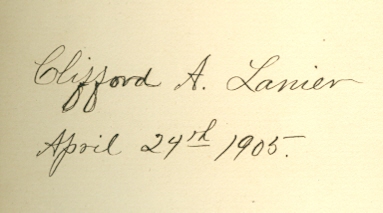 Clifford A. Lanier
April 24th 1905.